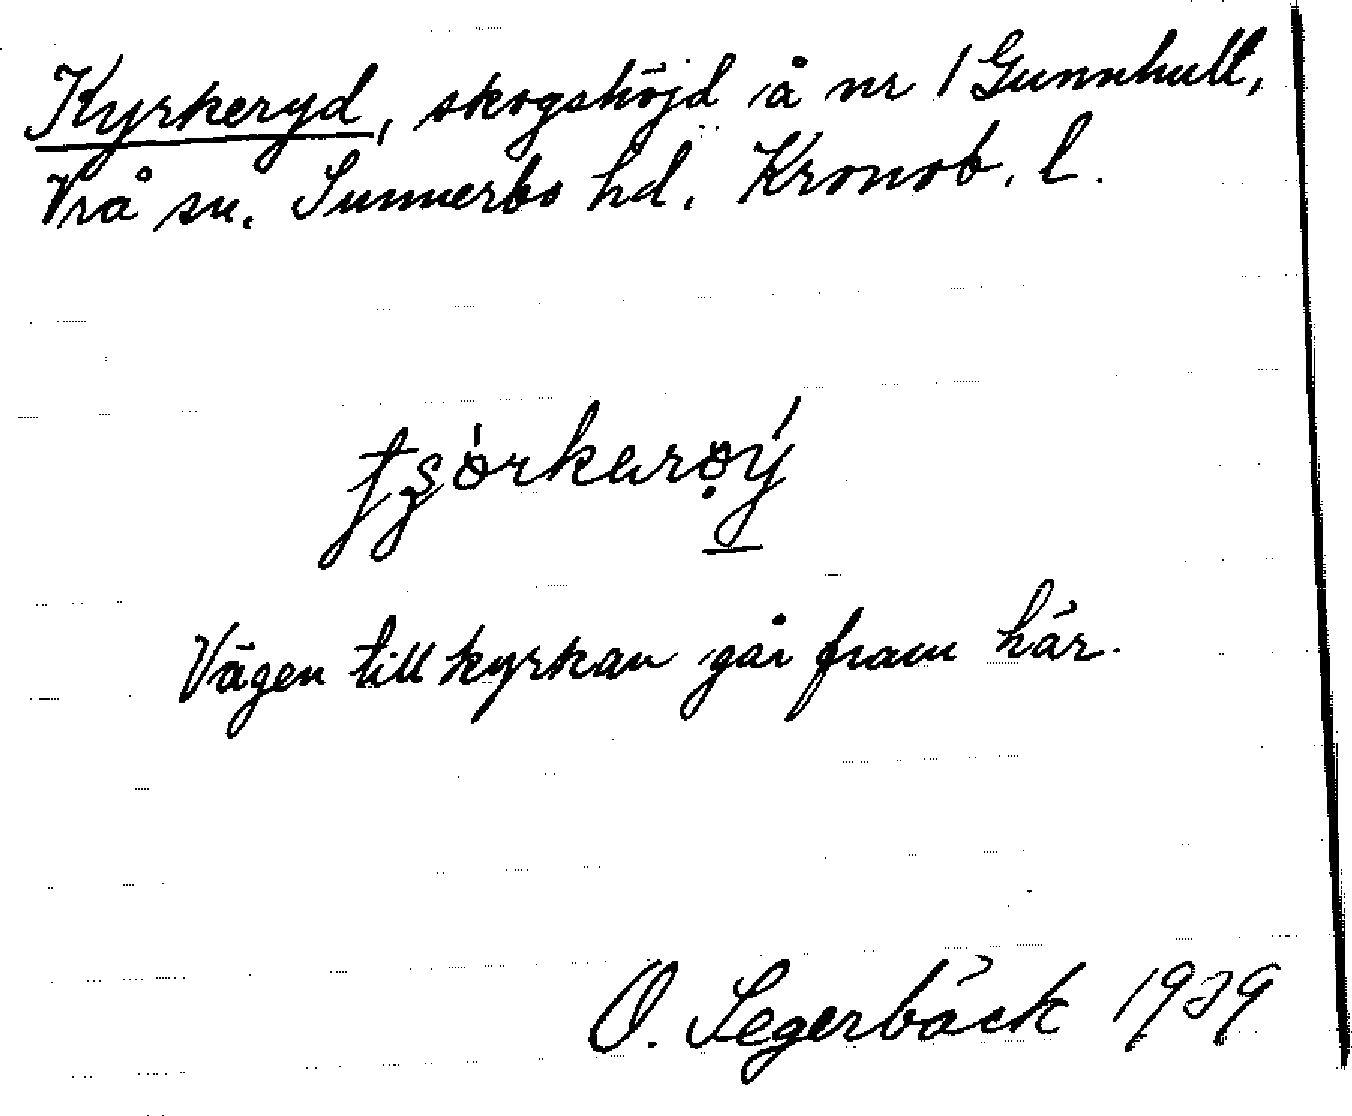 Kyrkeryd, skogshöjd å nr 1 Gunnhult,
Vrå sn. Sunnerbo hd. Kronob. l.
Vägen till kyrkan går fram här.
O. Segerbäck 1939